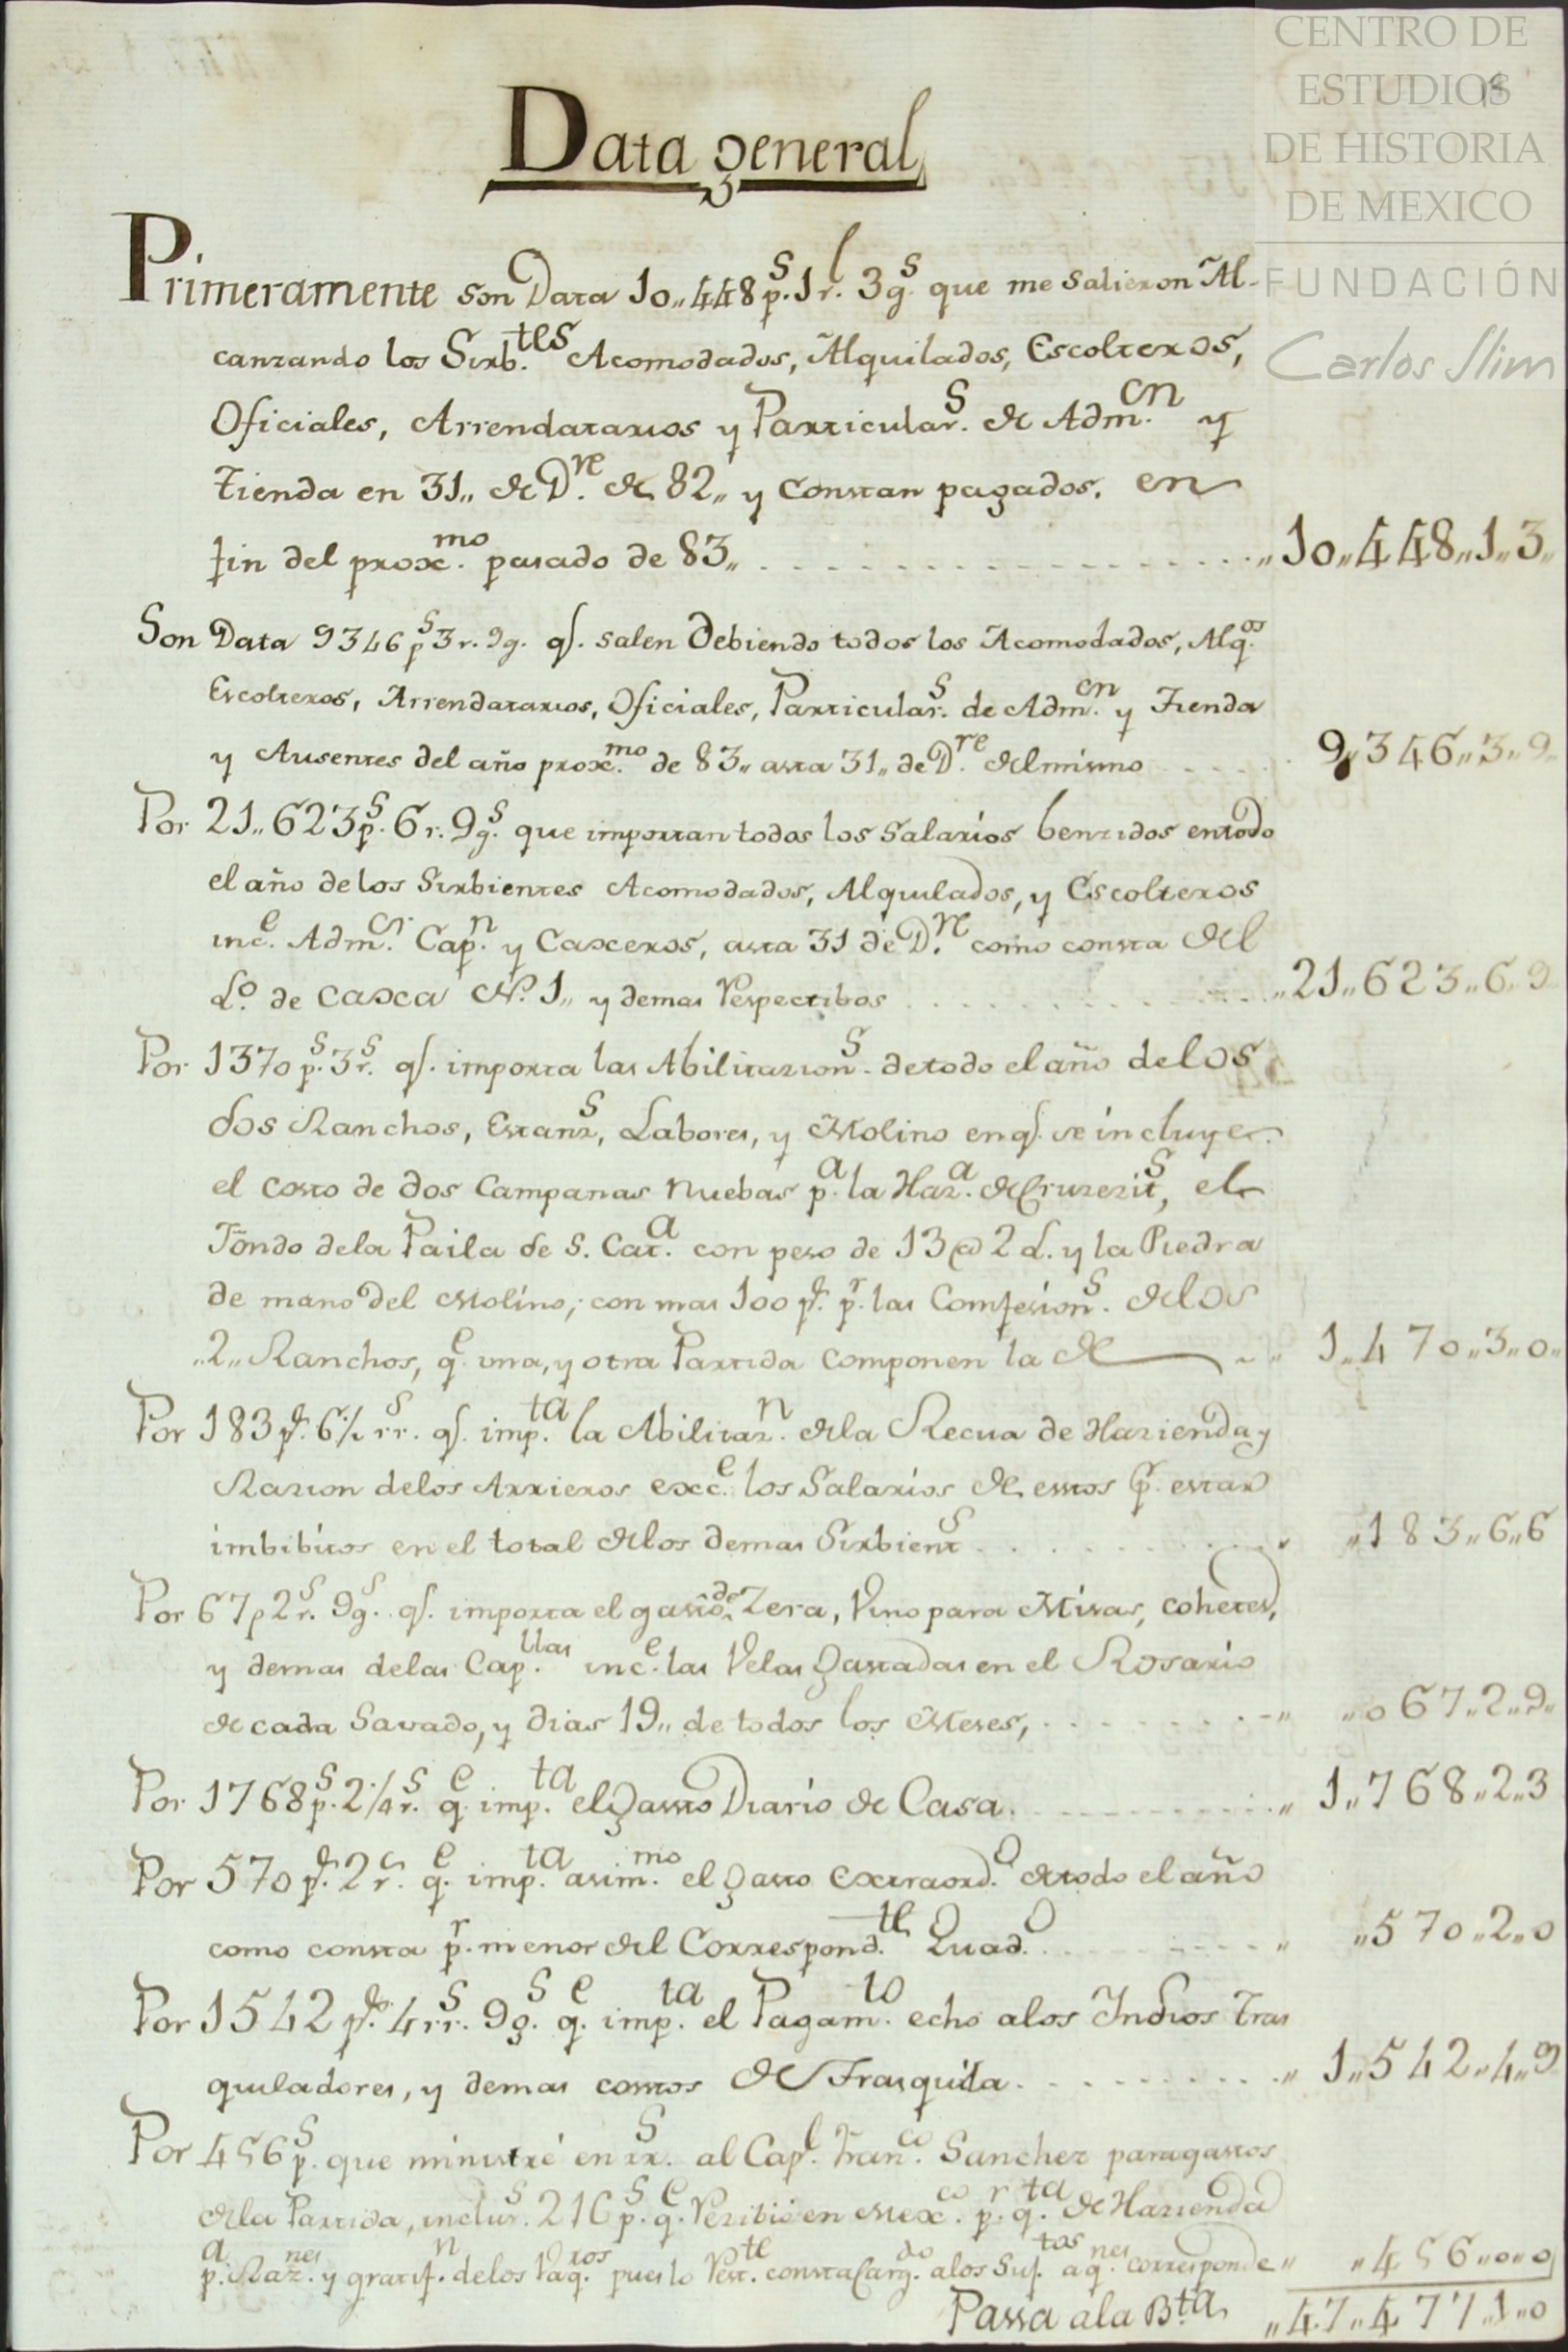 CENTRO DE
ESTUDIOS
DE HISTORIA
DE MEXICO
FUNDACIÓN
Carlos Slim
Data general
Primeramente son Data 10,,448 p.s 1 r.l 3 g.s que me salieron Al-
canzando los Sirb.tes Acomodados, Alquilados, Escolteros,
Oficiales, Arrendatarios y Particular.s de Adm.cn y
Tienda en 31,, de D.re de 82,, y constan pagados. en
fin del prox.mo pasado de 83,, ,,10,,448,,1,,3,,
Son Data 9346 p s 3 r. 9 g. q. salen debiendo todos los Acomodados, Alq.os
Escolteros, Arrendatarios, Oficiales, Particular.s de Adm.cn y Tienda
y Ausentes del año prox.mo de 83,, asta 31,, de D.re del mismo 9,,346,,3,,9,,
Por 21,,623 p.s 6 r. 9 g.s que importan todos los Salarios benzidos en todo
el año de los Sirbientes Acomodados, Alquilados, y Escolteros
inc.e Adm.cn Cap.n y Caxeros, asta 31 de D.re como consta del
L.o de Caxa N. 1,, y demas Respectibos ,,21,,623,,6,,9
Por 1370 p.s 3 r.s q. importa las Abilitazion.s de todo el año de los
dos Ranchos, Estanz.s, Labores, y Molino en q. se incluye
el costo de dos Campanas nuebas p.a la Haz.a de Cruzezit.s, el
Fondo de la Paila de S. Cat.a con peso de 13 @ 2 L. y la Piedra
de mano del Molino; con mas 100 p.s p.r las Comfesion.s de los
,,2,, Ranchos, q.e una, y otra Partida componen la de 1,,470,,3,,0,,
Por 183 p.s 6½ rr.s q. imp.ta la Abilitaz.n de la Recua de Hazienda y
Razion de los Arrieros exc.e los Salarios de estos q. estan
imbibitos en el total de los demas Sirbient.s ,,183,,6,,6
Por 67 p 2 r.s 9 g.s q. importa el gasto de Zera, Vino para Misas, cohetes,
y demas de las Cap.llas inc.e las Velas gastadas en el Rosario
de cada Savado, y dias 19,, de todos los Meses, ,,067,,2,,9,,
Por 1768 p.s 2¼ r.s q.e imp.ta el gasto Diario de Casa. 1,,768,,2,,3
Por 570 p.s 2 r.s q.e imp.ta asim.mo el gasto extraord.o de todo el año
como consta p.r menor del Correspond.te Quad.o ,,570,,2,,0
Por 1542 p.s 4 rr.s 9 g.s q.e imp.ta el Pagam.to echo a los Indios Tras
quiladores, y demas costos de Trasquila. ,,1,,542,,4,,9
Por 456 p.s que ministré en rr.s al Cap.l Fran.co Sanchez para gastos
de la Partida, inclus.s 216 p.s q.e Rezibió en Mex.co p.r q.ta de Hazienda
p.a Raz.nes y gratif.n de los Vaq.ros pues lo Rest.te consta Carg.do a los Suj.tos a q.nes corresponde,, ,,456,,0,,0
Passa a la B.ta ,,47,,477,,1,,0